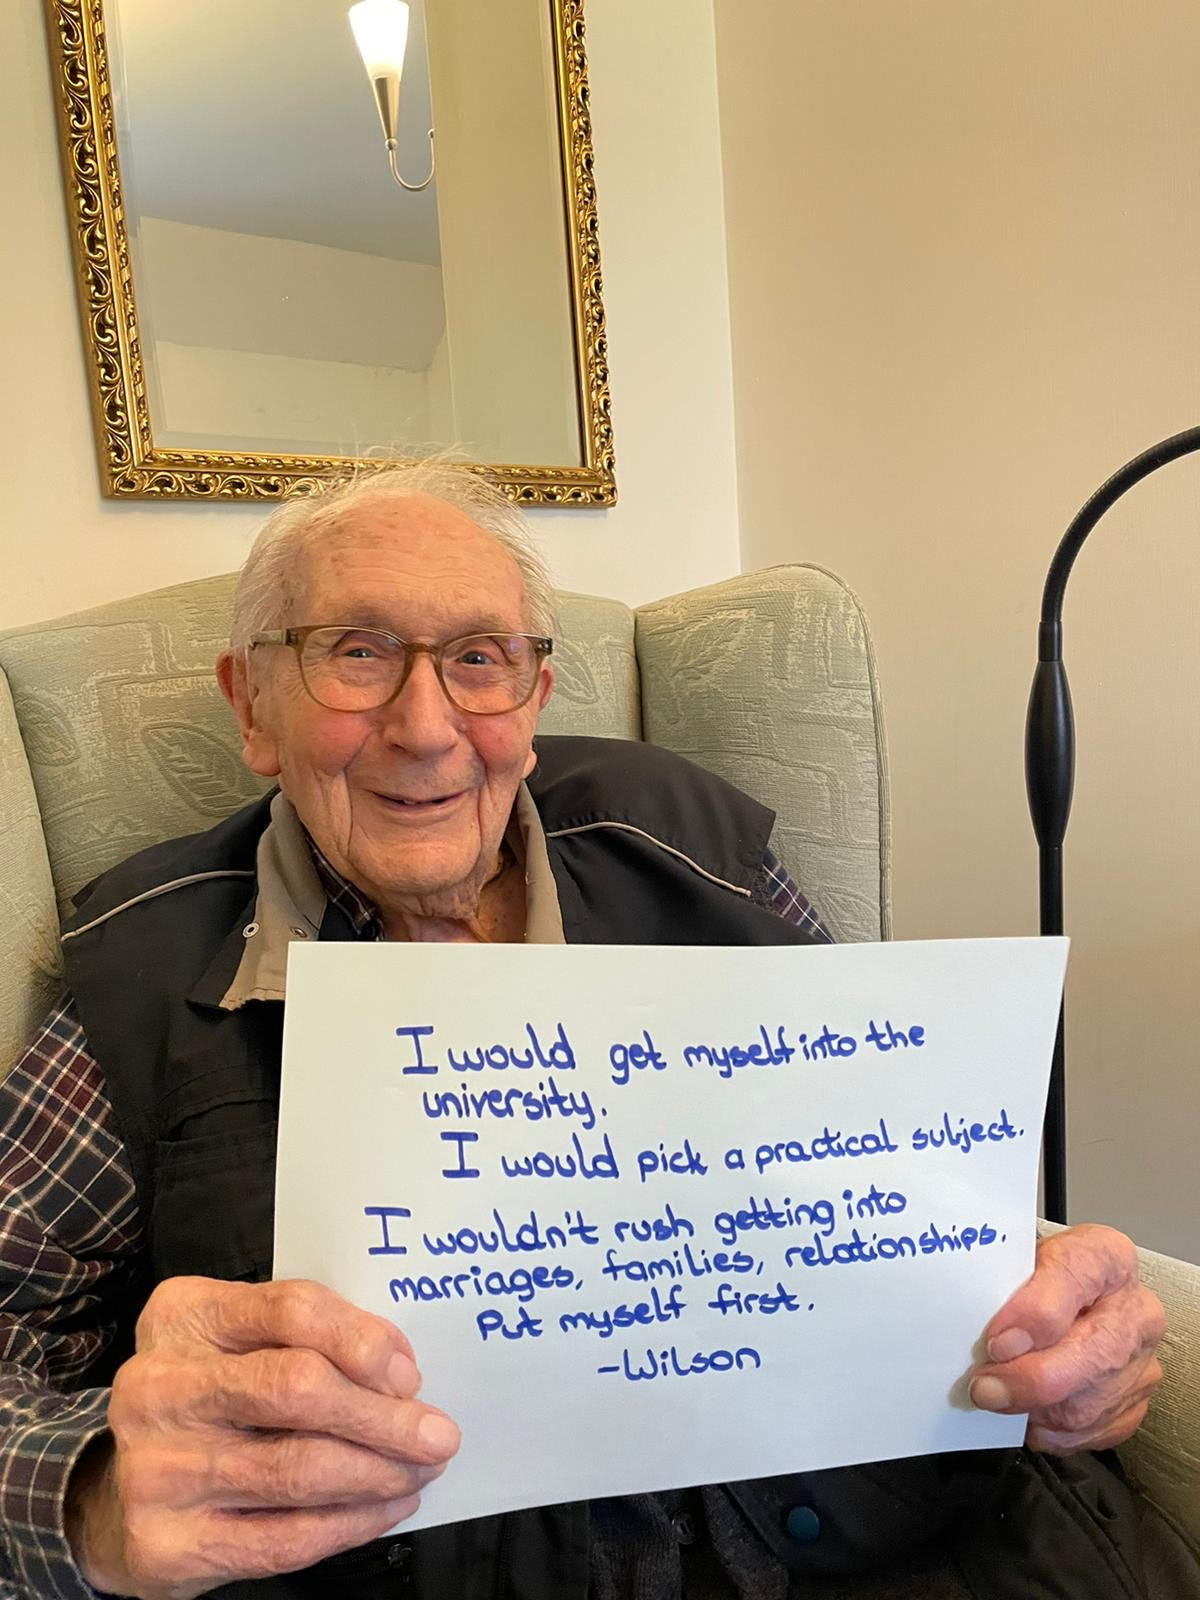 I would get myself into the
university.
I would pick a practical subject.
I wouldn't rush getting into
marriages, families, relationships.
Put myself first.
-Wilson